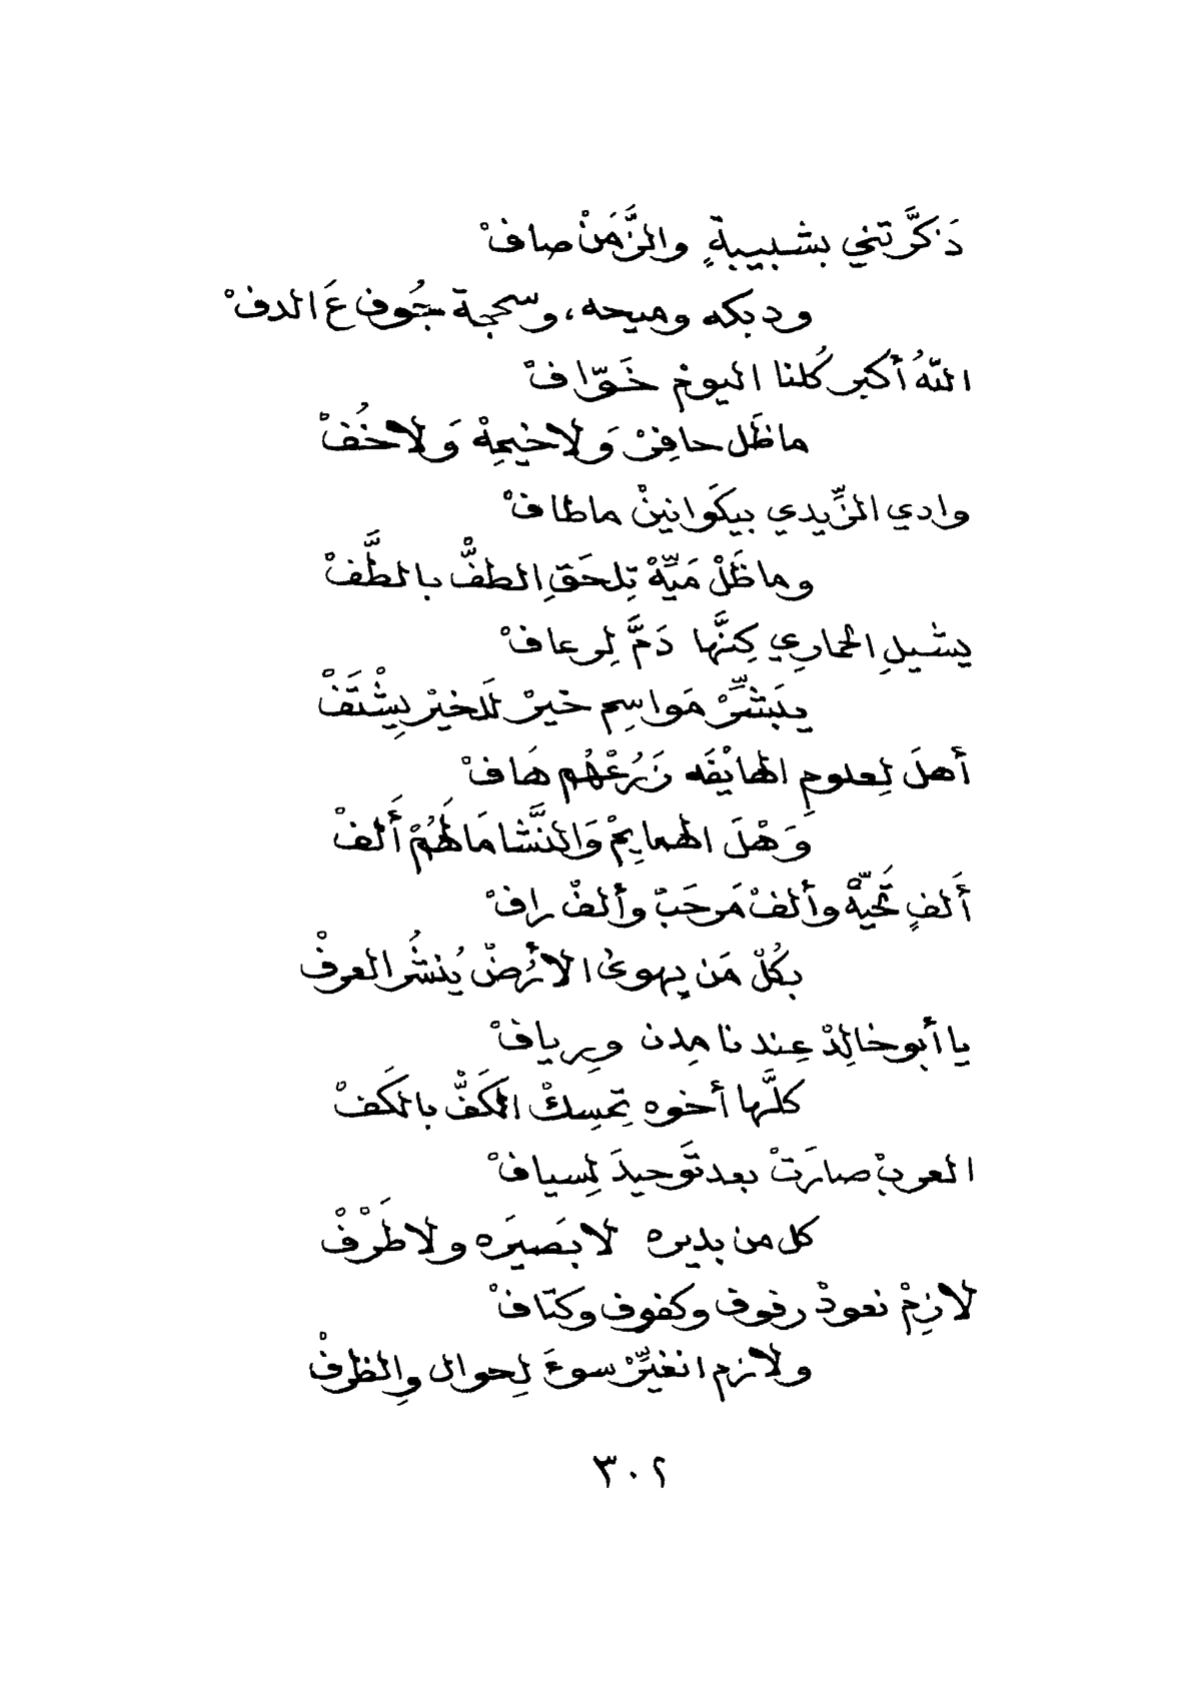 دَذكَّرتني بشبيبةٍ والزَّمَنْ صافْ
ودبكه وميحه، وسحجة جُوف عَ الدفْ
اللهُ أكبر كُلنا اليومْ خَوّافْ
ماظَل حافِيْ وَلاخيمِهْ وَلاخُفْ
وادي الزِّيدي بيكَوانينْ ماطافْ
وماظَلْ مَيِّهْ تِلحَقِ الطفّْ بالطَّفْ
يشيلِ الحمارِي كِنَّها دَمَّ لِرعافْ
يبَشِّرْ مَواسِم خيرْ للخيرْ بِيِشْتَفْ
أهلَ لِعلومِ الهايْفَه زَرُعْهُم هَافْ
وَهْلَ الهمايِمْ وَالنَّشامَا لَهُمْ أَلفْ
أَلفٍ تَحيّهْ وألفْ مَرحَبْ وألفْ رافْ
بكُلّ مَن يهوىٰ الأرُضْ يُنشُر العرفْ
يا أبو خالِدْ عِندنا مِدن وِريافْ
كلَّها أخوه تِمسِكْ الكَفّْ بالكَفْ
العربْ صارَتْ بعد تَوحيدَ لِسيافْ
كل من بديره لا بَصيرَه ولا طَرْفْ
لازِمْ نعودْ رفوف وكفوف وكتافْ
ولازم انغيِّرْ سوعَ لِحوال والِظرفْ
٣٠٢